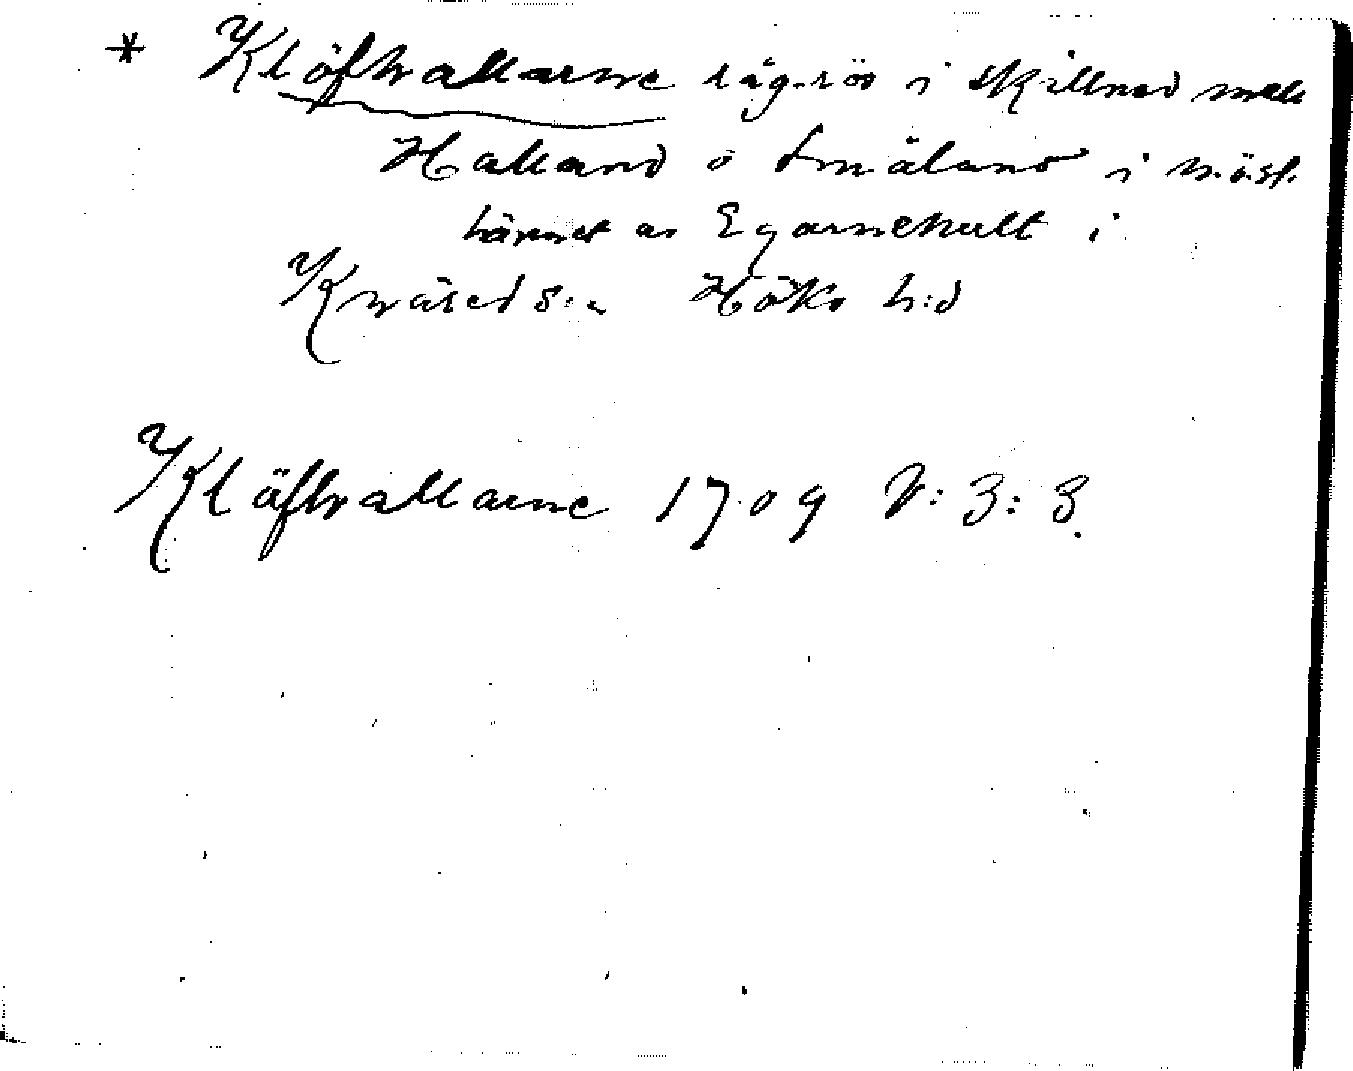 * Klöfhallarne råg.rös i skillnad mell
Halland o Småland i n.öst.
hörnet av Egarnehult i
Knäred s:n Höks h:d
Klöfhallarne 1709 V: 3: 8.